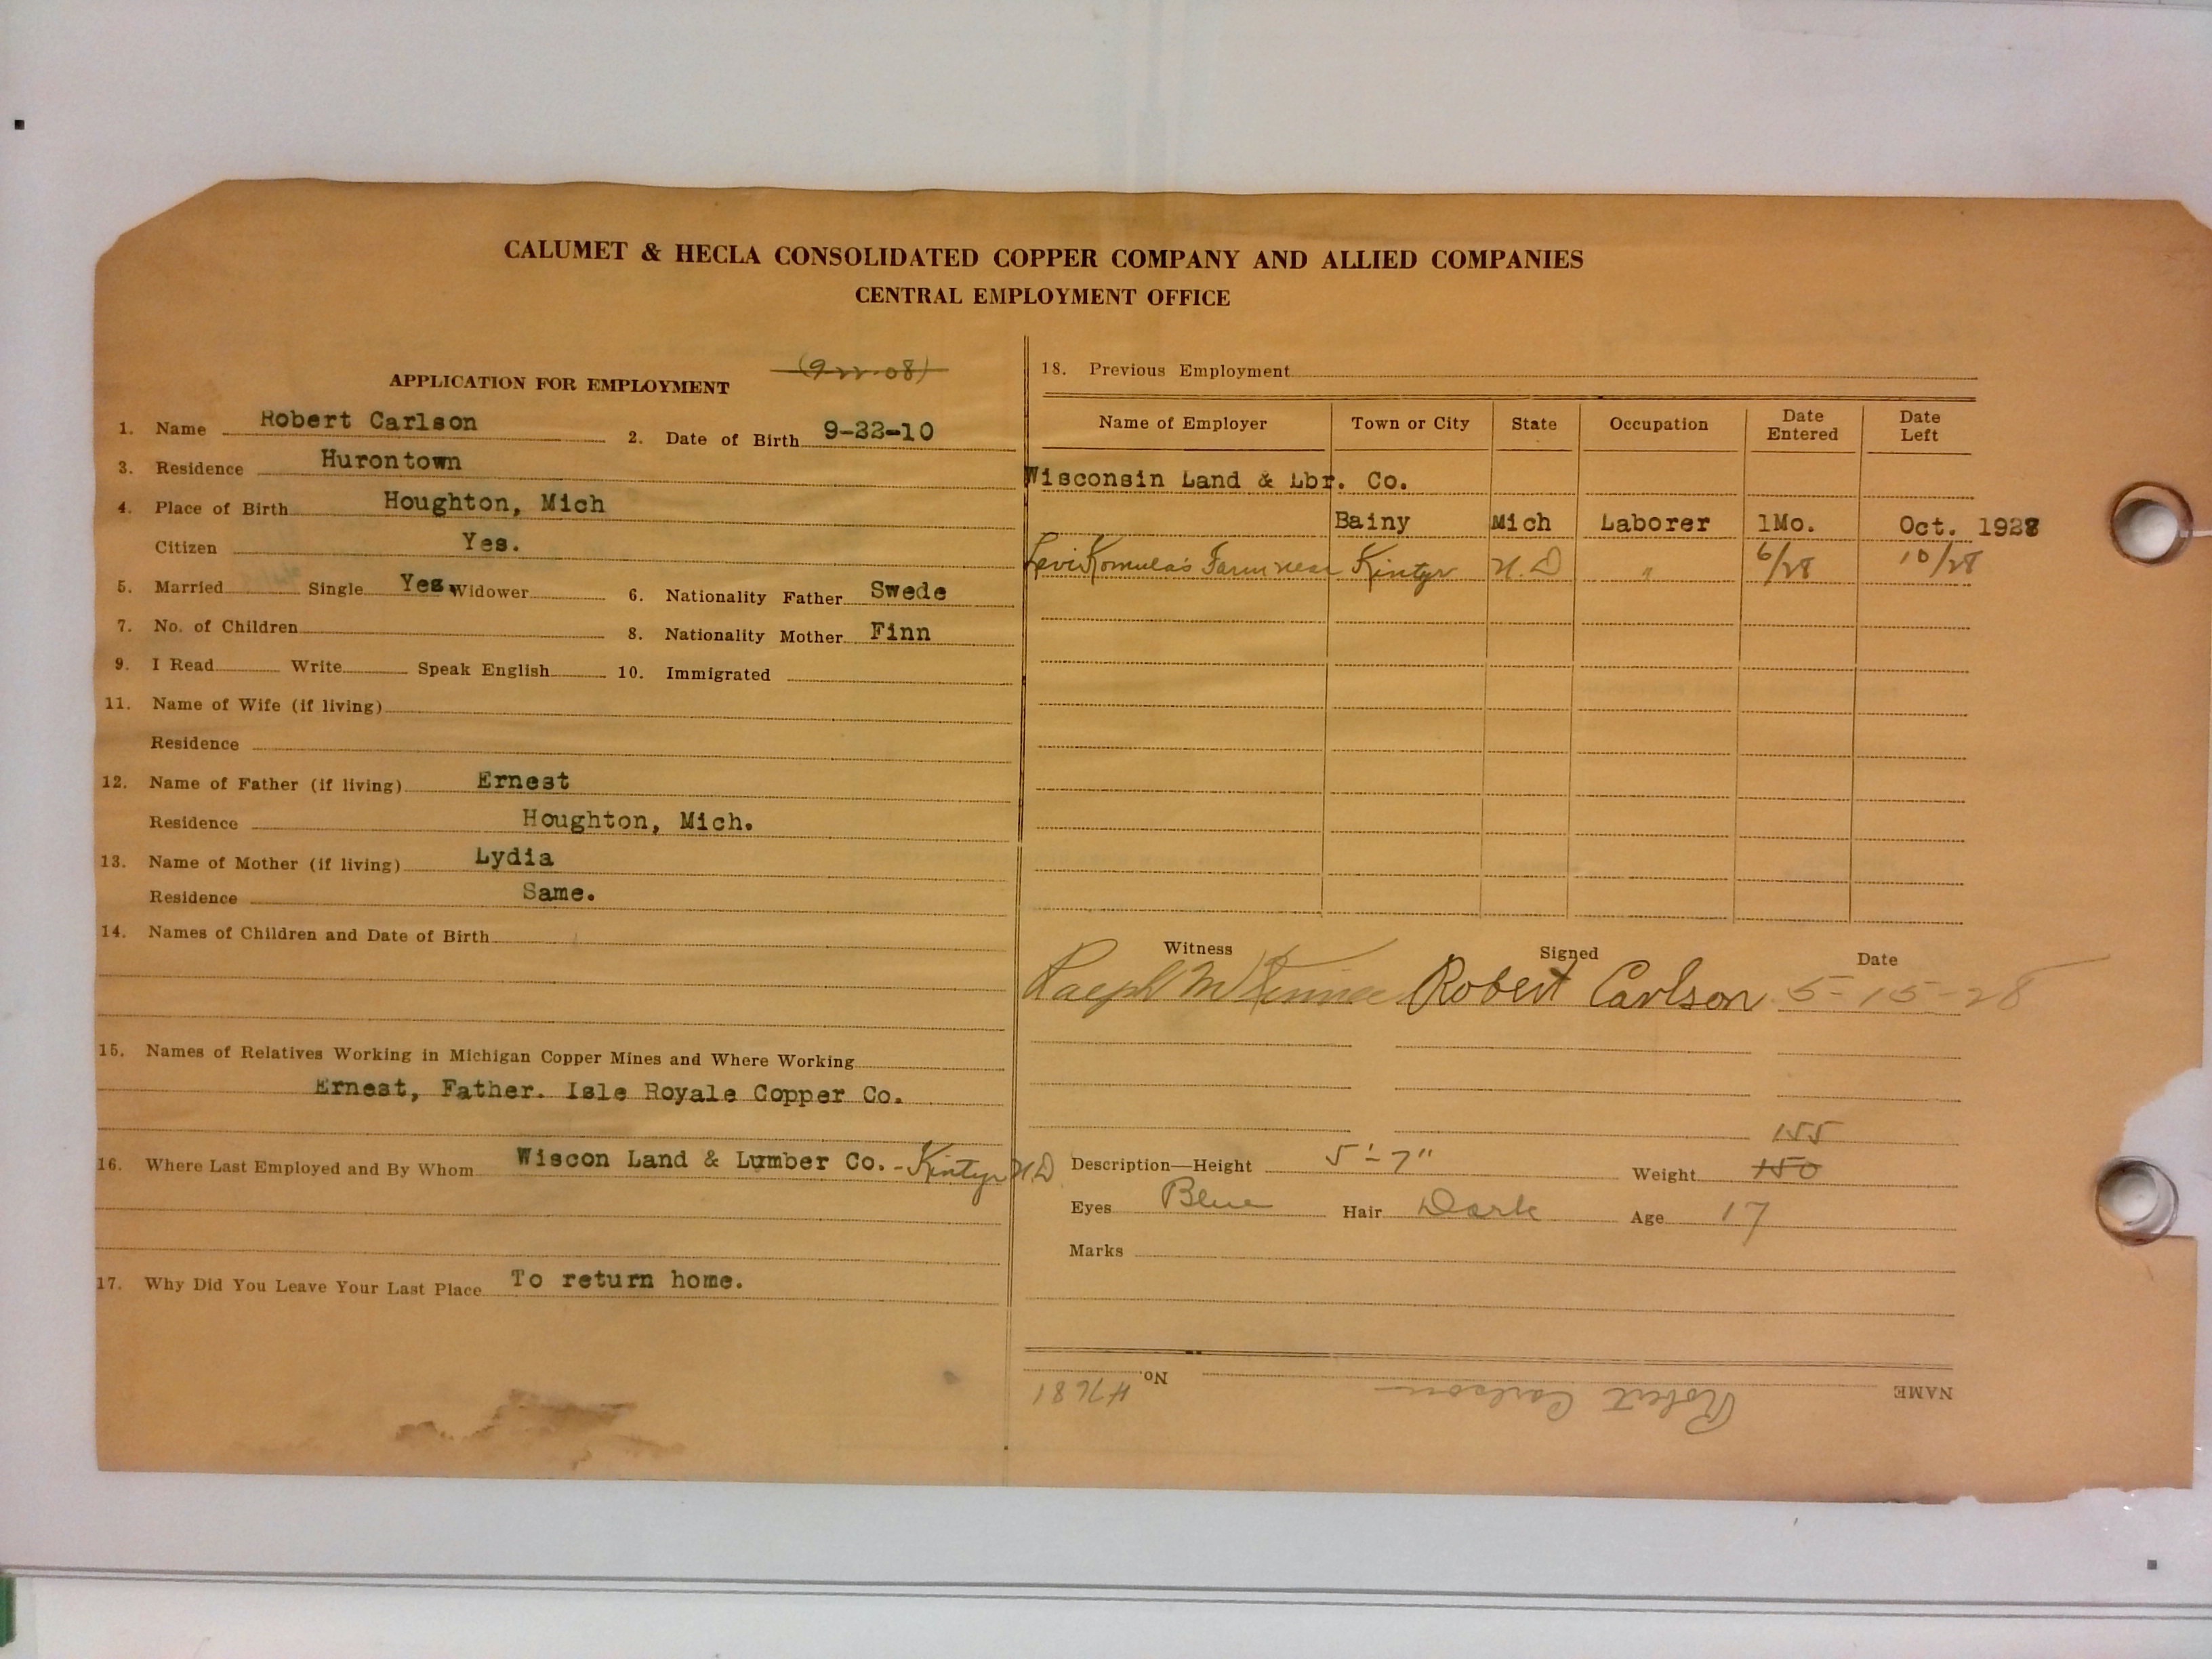 CALUMET & HECLA CONSOLIDATED COPPER COMPANY AND ALLIED COMPANIES
CENTRAL EMPLOYMENT OFFICE
APPLICATION FOR EMPLOYMENT
(9-22-08)
1. Name Robert Carlson 2. Date of Birth 9-22-10
3. Residence Hurontown
4. Place of Birth Houghton, Mich
Citizen Yes.
5. Married Single Yes Widower 6. Nationality Father Swede
7. No. of Children 8. Nationality Mother Finn
9. I Read Write Speak English 10. Immigrated
11. Name of Wife (if living)
Residence
12. Name of Father (if living) Ernest
Residence Houghton, Mich.
13. Name of Mother (if living) Lydia
Residence Same.
14. Names of Children and Date of Birth
15. Names of Relatives Working in Michigan Copper Mines and Where Working
Ernest, Father. Isle Royale Copper Co.
16. Where Last Employed and By Whom Wiscon Land & Lumber Co. - Kintyr N.D
17. Why Did You Leave Your Last Place To return home.
18. Previous Employment
Name of Employer Town or City State Occupation Date Entered Date Left
Wisconsin Land & Lbr. Co.
Bainy Mich Laborer 1Mo. Oct. 1928
Farm near Kintyr N.D " 6/28 10/28
Witness Signed Date
Ralph Robert Carlson 5-15-28
155
Description—Height 5'-7" Weight 150
Eyes Blue Hair Dark Age 17
Marks
NAME Robert Carlson No. 47681